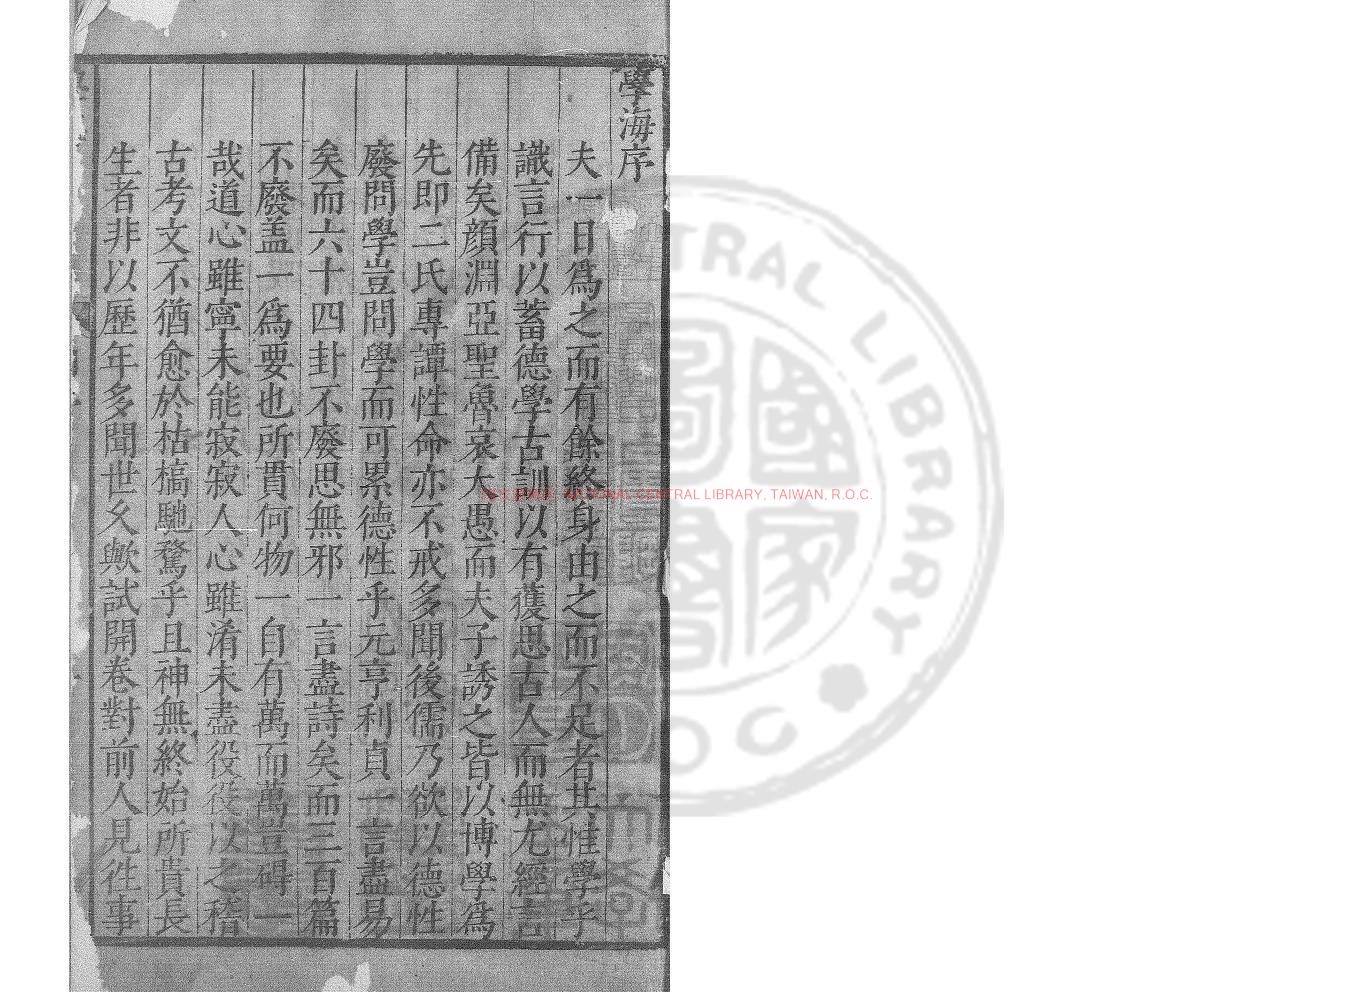 學海序
夫一日爲之而有餘終身由之而不足者其惟學乎
識言行以蓄德學古訓以有獲思古人而無尤經言
備矣顔淵亞聖魯哀大愚而夫子誘之皆以博學爲
先即二氏專譚性命亦不戒多聞後儒乃欲以德性
廢問學豈問學而可累德性乎元亨利貞一言盡易
矣而六十四卦不廢思無邪一言盡詩矣而三百篇
不廢盖一爲要也所貫何物一自有萬而萬豈碍一
哉道心雖寧未能寂寂人心雖淆未盡役役以之稽
古考文不猶愈於枯槁馳騖乎且神無終始所貴長
生者非以歷年多聞世乆歟試開卷對前人見徃事
NATIONAL CENTRAL LIBRARY, TAIWAN, R.O.C.